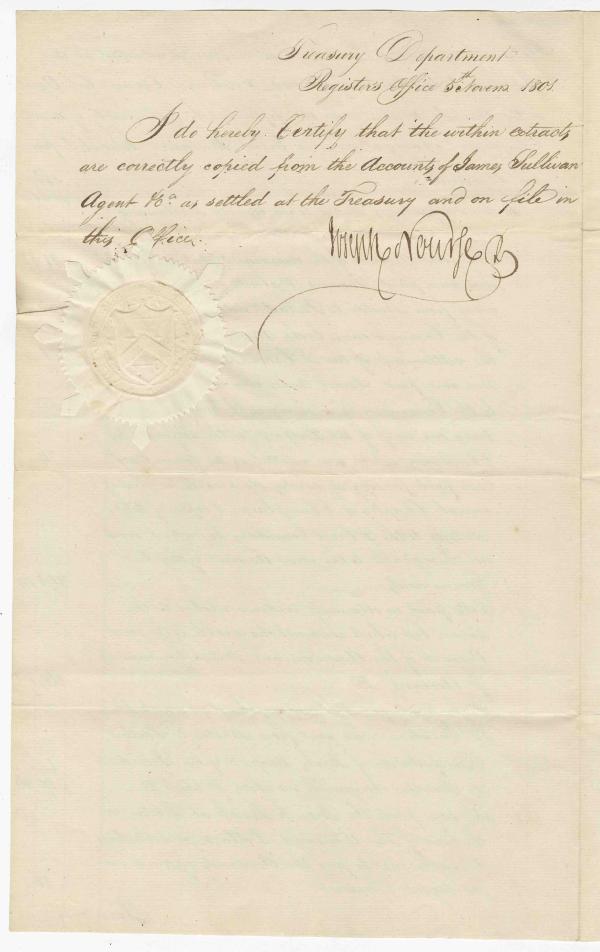 Treasury Department
Registers Office 5th Novem 1801.
I do hereby Certify that the within extracts
are correctly copied from the Accounts of James Sullivan
Agent &ca. as settled at the Treasury and on file in
this Office.
Joseph Nourse R